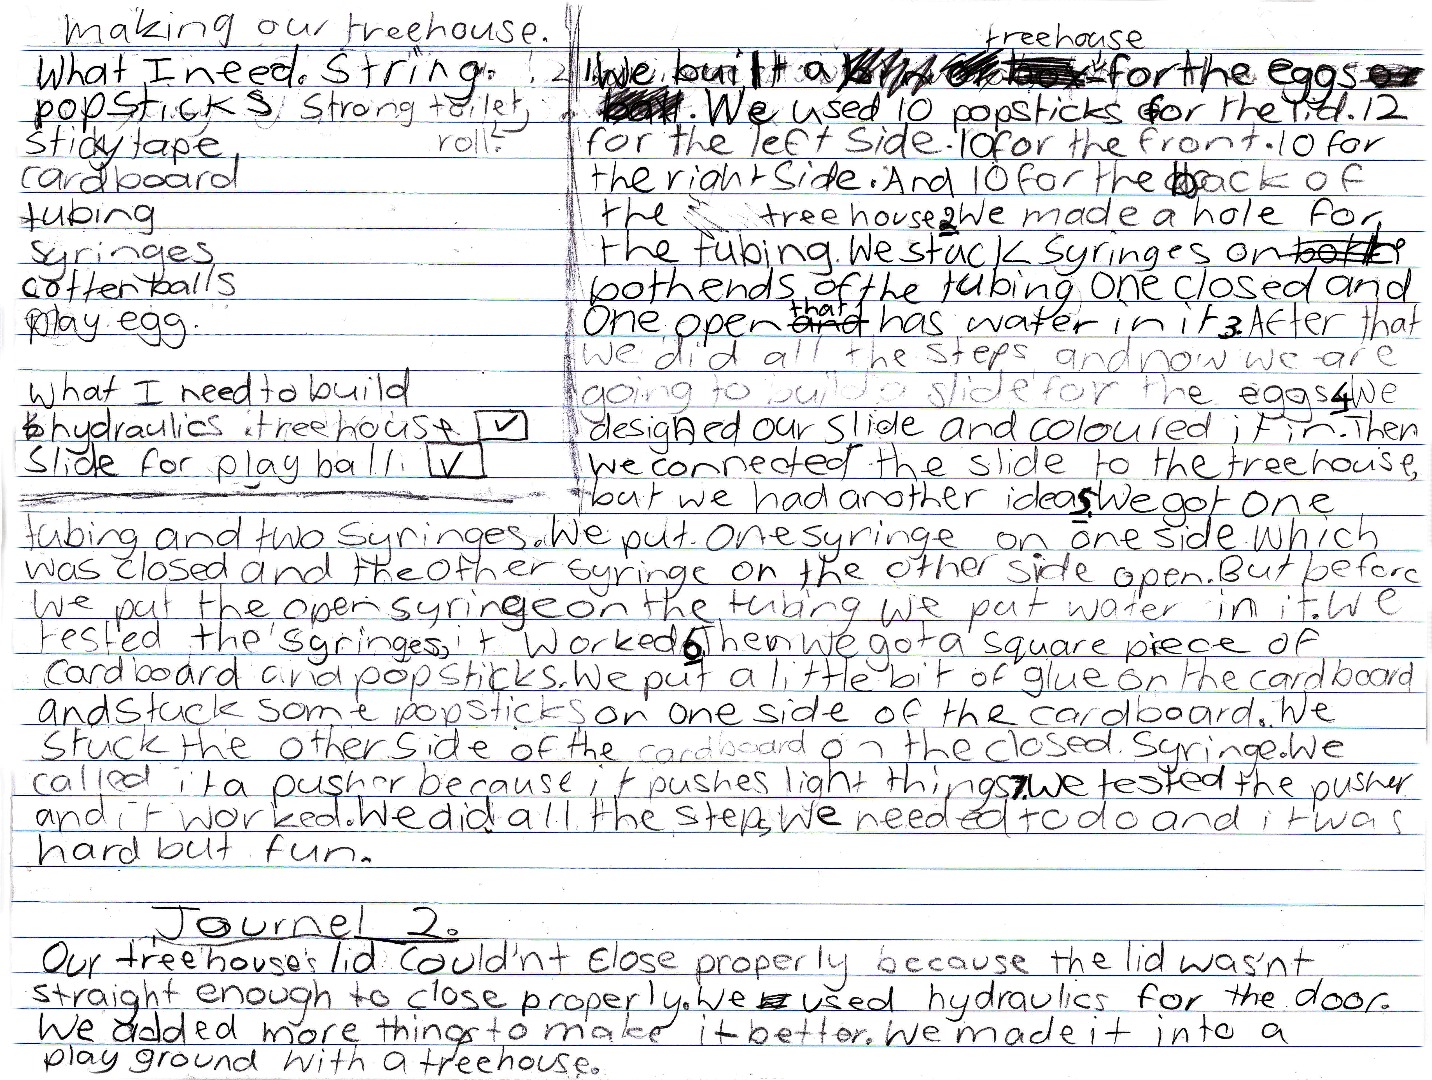 making our treehouse.
What I need. String.
popsticks Strong toilet
roll.
sticky tape,
cardboard
tubing
syringes
cotten balls
play egg.
What I need to build
hydraulics treehouse ✓
Slide for play ball. ✓
treehouse
1. We built a for the eggs
. We used 10 popsticks for the lid. 12
for the left side. 10 for the front. 10 for
the right side. And 10 for the back of
the treehouse 2. We made a hole for
the tubing. We stuck syringes on
both ends of the tubing One closed and
that
One open and has water in it 3. After that
we did all the steps and now we are
going to build a slide for the eggs 4. We
designed our slide and coloured it in. Then
we connected the slide to the treehouse,
but we had another idea 5. We got one
tubing and two syringes. We put one syringe on one side which
was closed and the other syringe on the other side open. But before
we put the open syringe on the tubing we put water in it. We
tested the syringes, it worked 6. Then we got a square piece of
cardboard and popsticks. We put a little bit of glue on the cardboard
and stuck some popsticks on one side of the cardboard. We
stuck the other side of the cardboard on the closed syringe. We
called it a pusher because it pushes light things 7. We tested the pusher
and it worked. We did all the steps we needed to do and it was
hard but fun.
Journel 2.
Our treehouse's lid Could'nt Close properly because the lid was'nt
straight enough to close properly. We used hydraulics for the door.
We added more things to make it better. We made it into a
play ground with a treehouse.